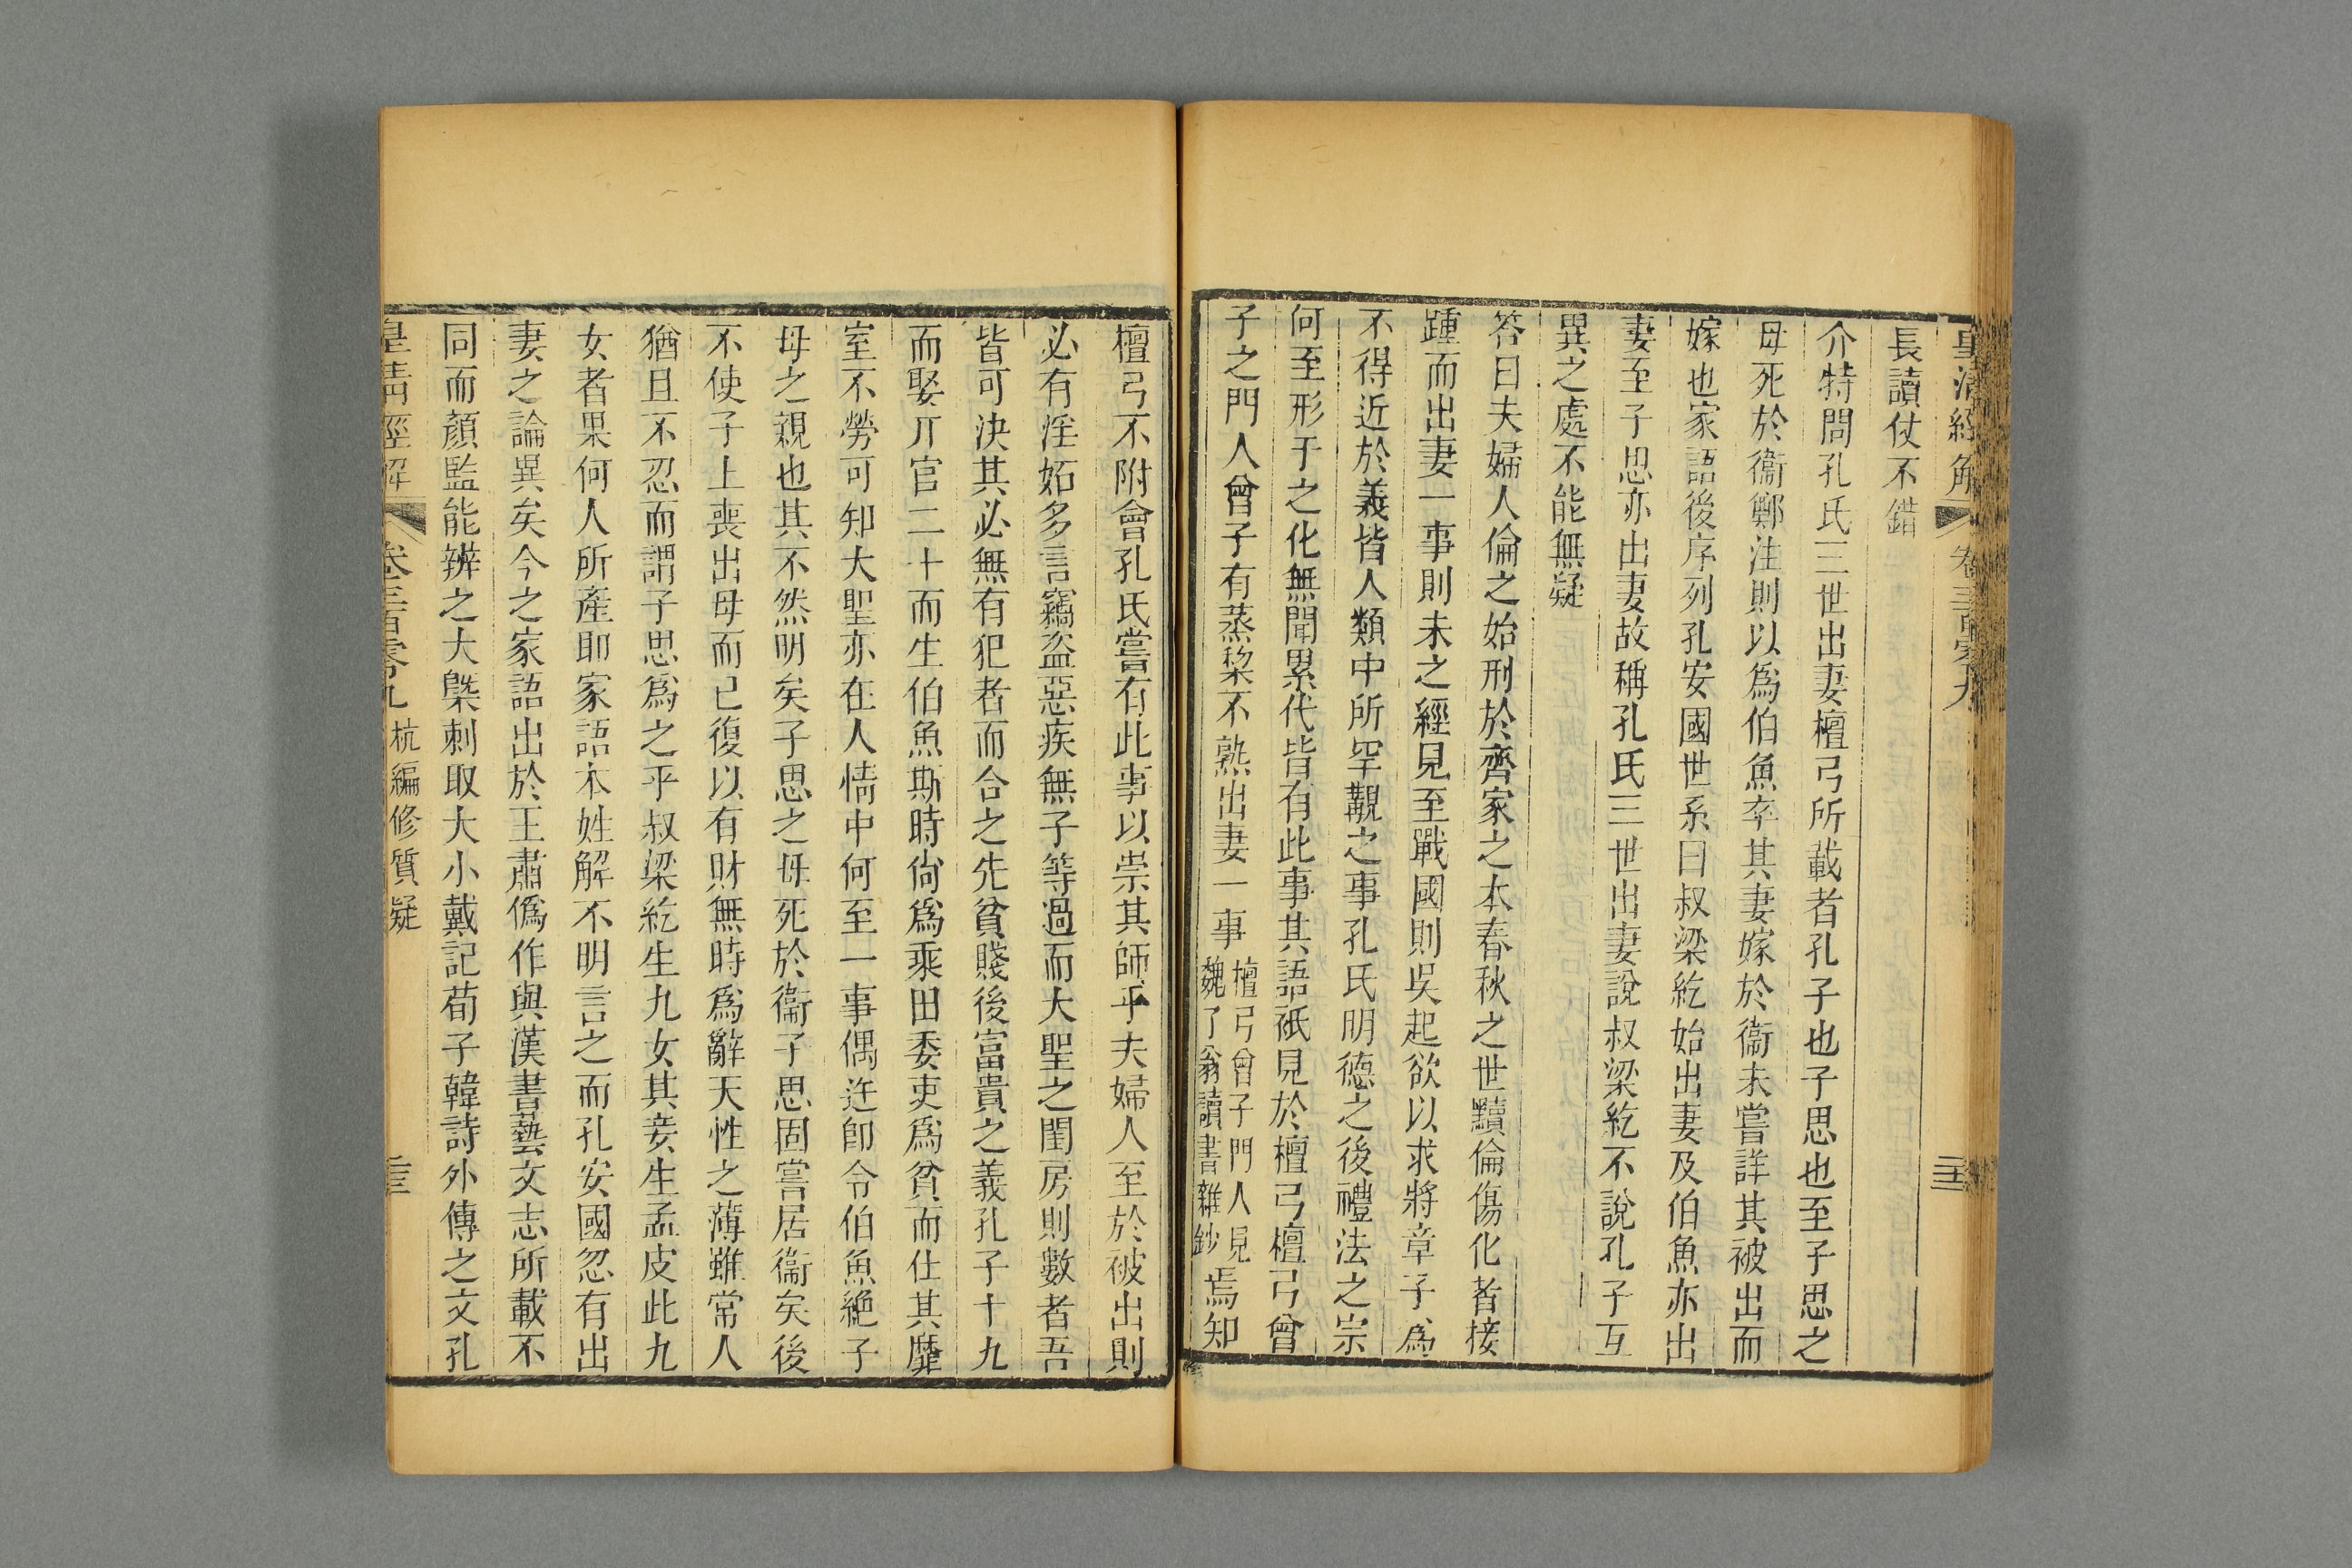 皇清經解 卷三百零九
長讀仗不錯
介特問孔氏三世出妻檀弓所載者孔子也子思也至子思之
母死於衞鄭注則以爲伯魚卒其妻嫁於衞未嘗詳其被出而
嫁也家語後序列孔安國世系曰叔梁紇始出妻及伯魚亦出
妻至子思亦出妻故稱孔氏三世出妻說叔梁紇不說孔子互
異之處不能無疑
答曰夫婦人倫之始刑於齊家之本春秋之世黷倫傷化者接
踵而出妻一事則未之經見至戰國則吳起欲以求將章子爲
不得近於義皆人類中所罕覯之事孔氏明德之後禮法之宗
何至形于之化無聞累代皆有此事其語祇見於檀弓檀弓曾
子之門人曾子有蒸棃不熟出妻一事檀弓曾子門人見魏了翁讀書雜鈔焉知
檀弓不附會孔氏嘗有此事以崇其師乎夫婦人至於被出則
必有淫妬多言竊盜惡疾無子等過而大聖之閨房則數者吾
皆可決其必無有犯者而合之先貧賤後富貴之義孔子十九
而娶丌官二十而生伯魚斯時尙爲乘田委吏爲貧而仕其靡
室不勞可知大聖亦在人情中何至一事偶迕卽令伯魚絶子
母之親也其不然明矣子思之母死於衞子思固嘗居衞矣後
不使子上喪出母而已復以有財無時爲辭天性之薄雖常人
猶且不忍而謂子思爲之乎叔梁紇生九女其妾生孟皮此九
女者果何人所產耶家語本姓解不明言之而孔安國忽有出
妻之論異矣今之家語出於王肅僞作與漢書藝文志所載不
同而顏監能辨之大槩剌取大小戴記荀子韓詩外傳之文孔
皇清經解 卷三百零九 杭編修質疑